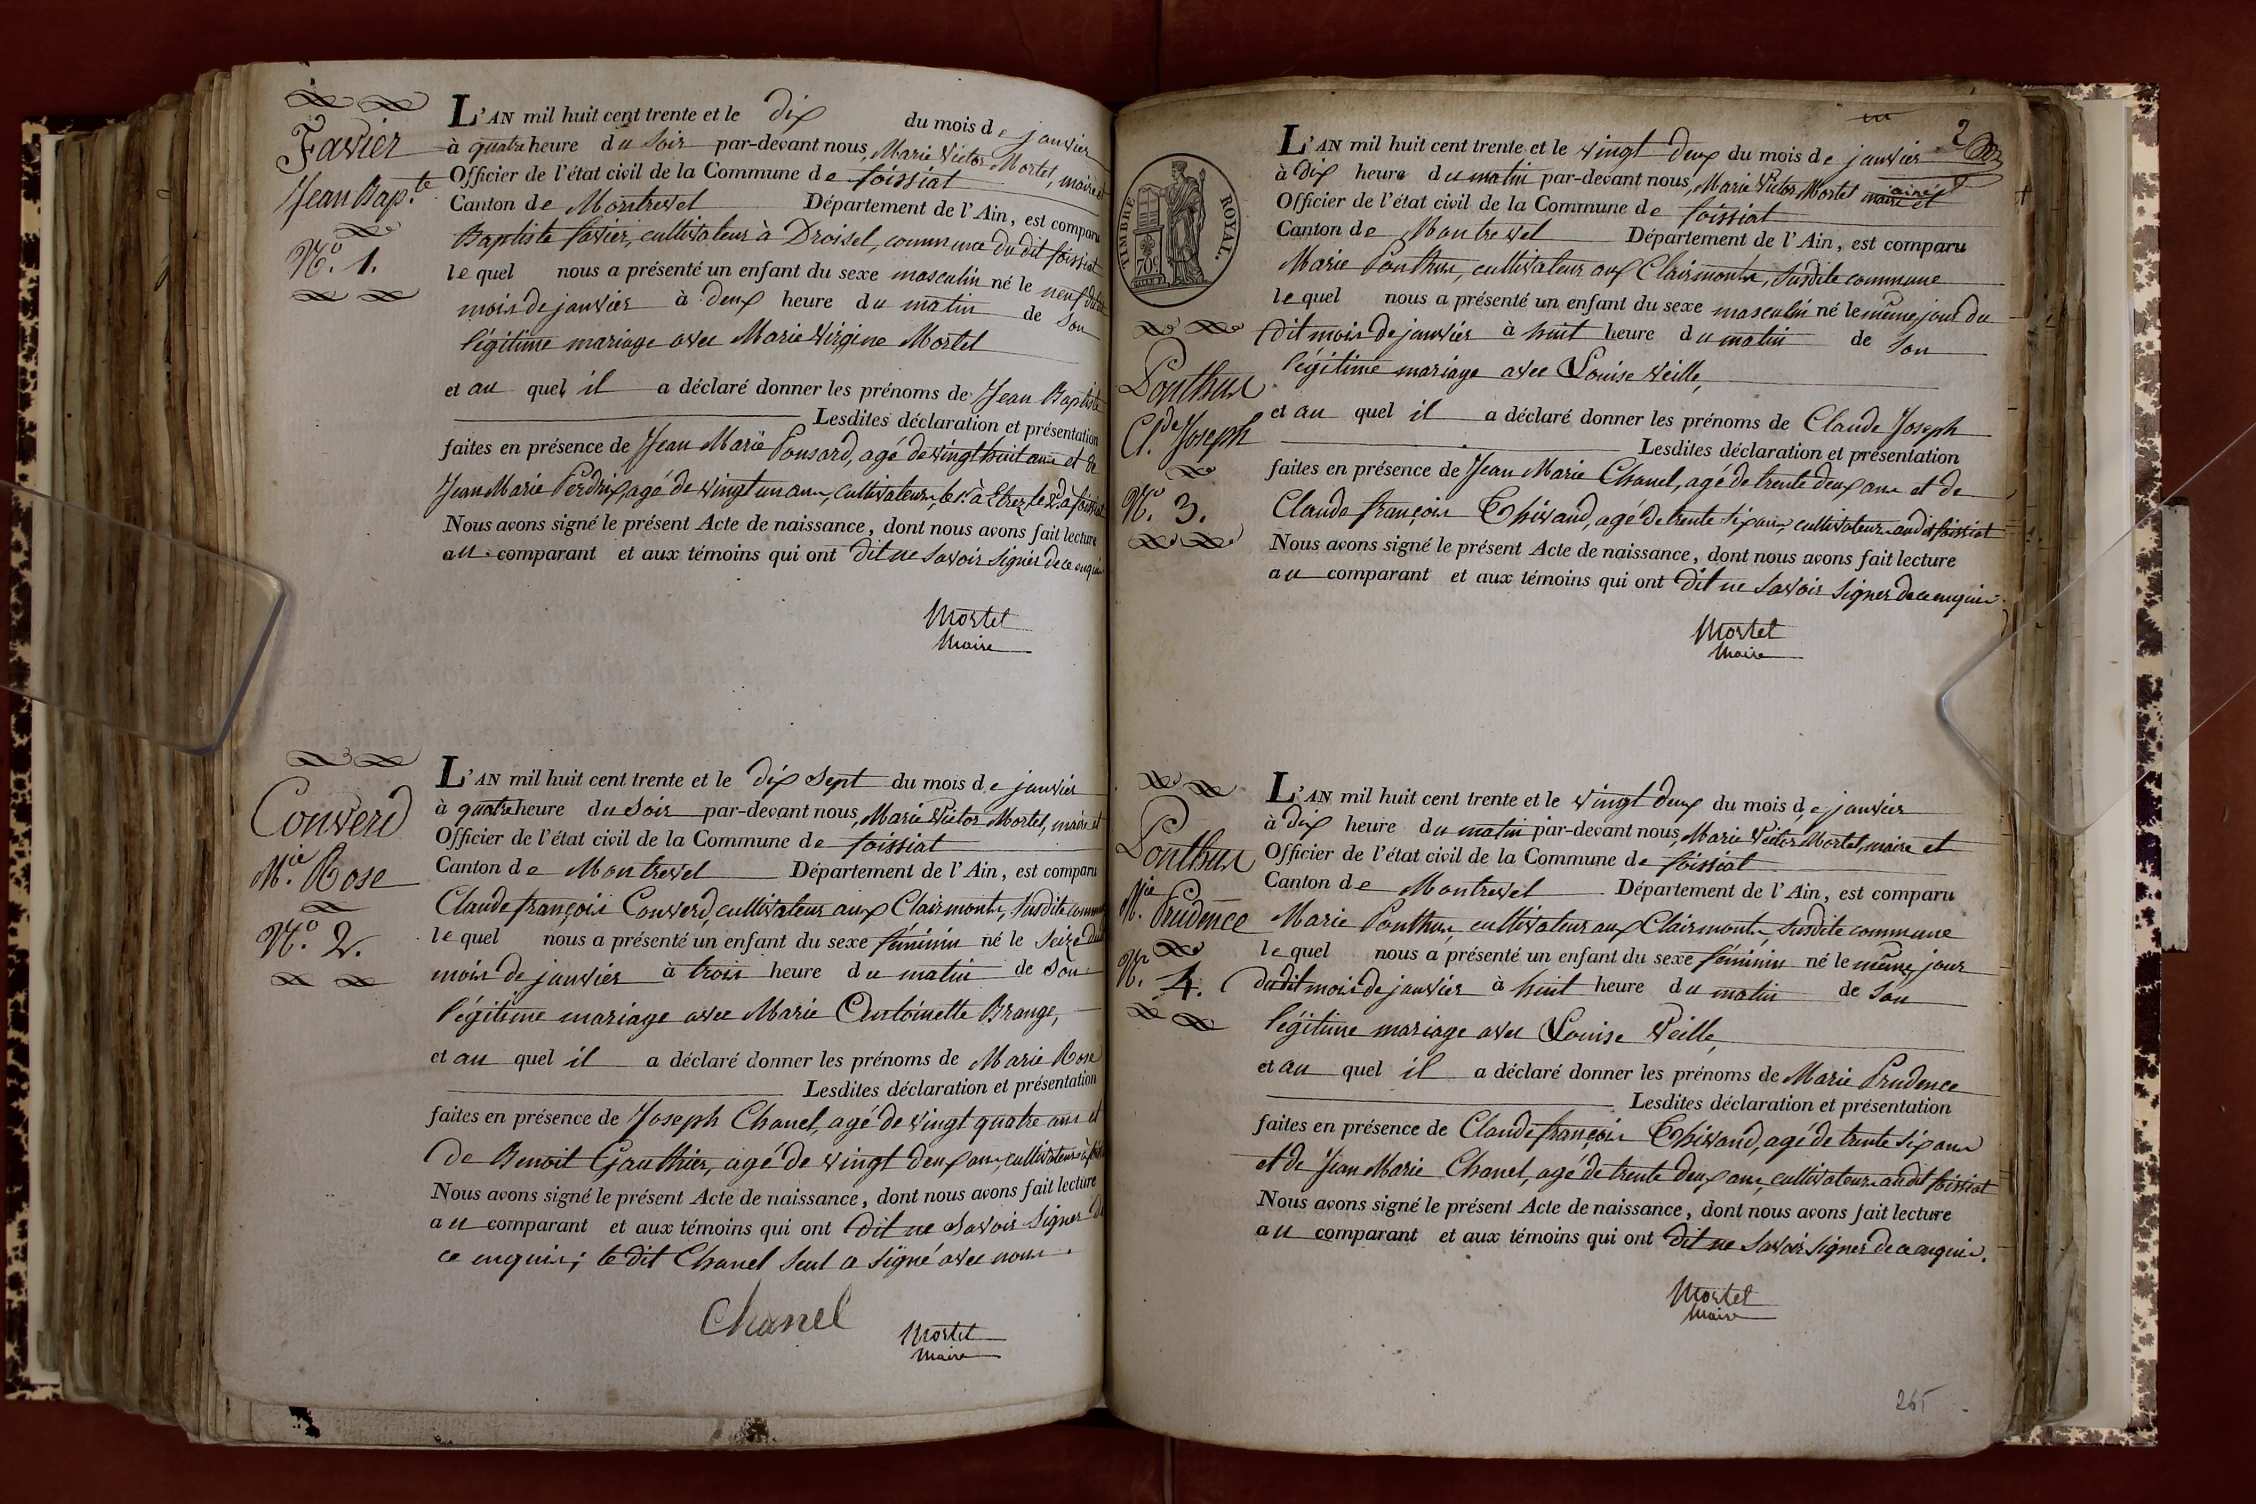 Favier
Jean Bap.te
N.o 1.
L'AN mil huit cent trente et le dix du mois de janvier
à quatre heure du soir par-devant nous, Marie Victor Mortel, maire et
Officier de l'état civil de la Commune de foissiat
Canton de Montrevel Département de l'Ain, est comparu
Baptiste favier, cultivateur à Droisel, commune du dit foissiat
lequel nous a présenté un enfant du sexe masculin né le neuf dudit
mois de janvier à deux heure du matin de son
légitime mariage avec Marie Virgine Mortel
et au quel il a déclaré donner les prénoms de Jean Baptiste
Lesdites déclaration et présentation
faites en présence de Jean Marie Ponsard, agé de vingt huit ans et de
Jean Marie Perdrix, agé de vingt un ans, cultivateurs, le 1.r à Etrez, le 2.d à foissiat
Nous avons signé le présent Acte de naissance, dont nous avons fait lecture
au comparant et aux témoins qui ont dit ne savoir signer de ce enquis
Mortel
Maire
Converd
M.ie Rose
N.o 2.
L'AN mil huit cent trente et le dix sept du mois de janvier
à quatre heure du soir par-devant nous, Marie Victor Mortel, maire et
Officier de l'état civil de la Commune de foissiat
Canton de Montrevel Département de l'Ain, est comparu
Claude françois Converd, cultivateur aux Clairmonts, susdite commune
lequel nous a présenté un enfant du sexe féminin né le seize dudit
mois de janvier à trois heure du matin de son
légitime mariage avec Marie Antoinette Brange,
et au quel il a déclaré donner les prénoms de Marie Rose
Lesdites déclaration et présentation
faites en présence de Joseph Chanel, agé de vingt quatre ans et
de Benoit Gauthier, agé de vingt deux ans, cultivateurs à
Nous avons signé le présent Acte de naissance, dont nous avons fait lecture
au comparant et aux témoins qui ont dit ne savoir signer de
ce enquis; le dit Chanel seul a signé avec nous.
Chanel
Mortel
Maire
2
TIMBRE ROYAL.
70c
Ponthus
Cl.de Joseph
N.o 3.
L'AN mil huit cent trente et le vingt deux du mois de janvier
à dix heure du matin par-devant nous, Marie Victor Mortel maire et
Officier de l'état civil de la Commune de foissiat
Canton de Montrevel Département de l'Ain, est comparu
Marie Ponthus, cultivateur aux Clairmonts, susdite commune
lequel nous a présenté un enfant du sexe masculin né le même jour du
dit mois de janvier à huit heure du matin de son
légitime mariage avec Louise Veille,
et au quel il a déclaré donner les prénoms de Claude Joseph
Lesdites déclaration et présentation
faites en présence de Jean Marie Chanel, agé de trente deux ans et de
Claude françois Thivaud, agé de trente six ans, cultivateurs audit foissiat
Nous avons signé le présent Acte de naissance, dont nous avons fait lecture
au comparant et aux témoins qui ont dit ne savoir signer de ce enquis.
Mortel
Maire
Ponthus
M.ie Prudence
N.o 4.
L'AN mil huit cent trente et le vingt deux du mois de janvier
à dix heure du matin par-devant nous, Marie Victor Mortel, maire et
Officier de l'état civil de la Commune de foissiat
Canton de Montrevel Département de l'Ain, est comparu
Marie Ponthus, cultivateur aux Clairmonts, susdite commune
lequel nous a présenté un enfant du sexe féminin né le même jour
dudit mois de janvier à huit heure du matin de son
légitime mariage avec Louise Veille,
et au quel il a déclaré donner les prénoms de Marie Prudence
Lesdites déclaration et présentation
faites en présence de Claude françois Thivaud, agé de trente six ans
et de Jean Marie Chanel, agé de trente deux ans, cultivateurs audit foissiat
Nous avons signé le présent Acte de naissance, dont nous avons fait lecture
au comparant et aux témoins qui ont dit ne savoir signer de ce enquis.
Mortel
Maire
265